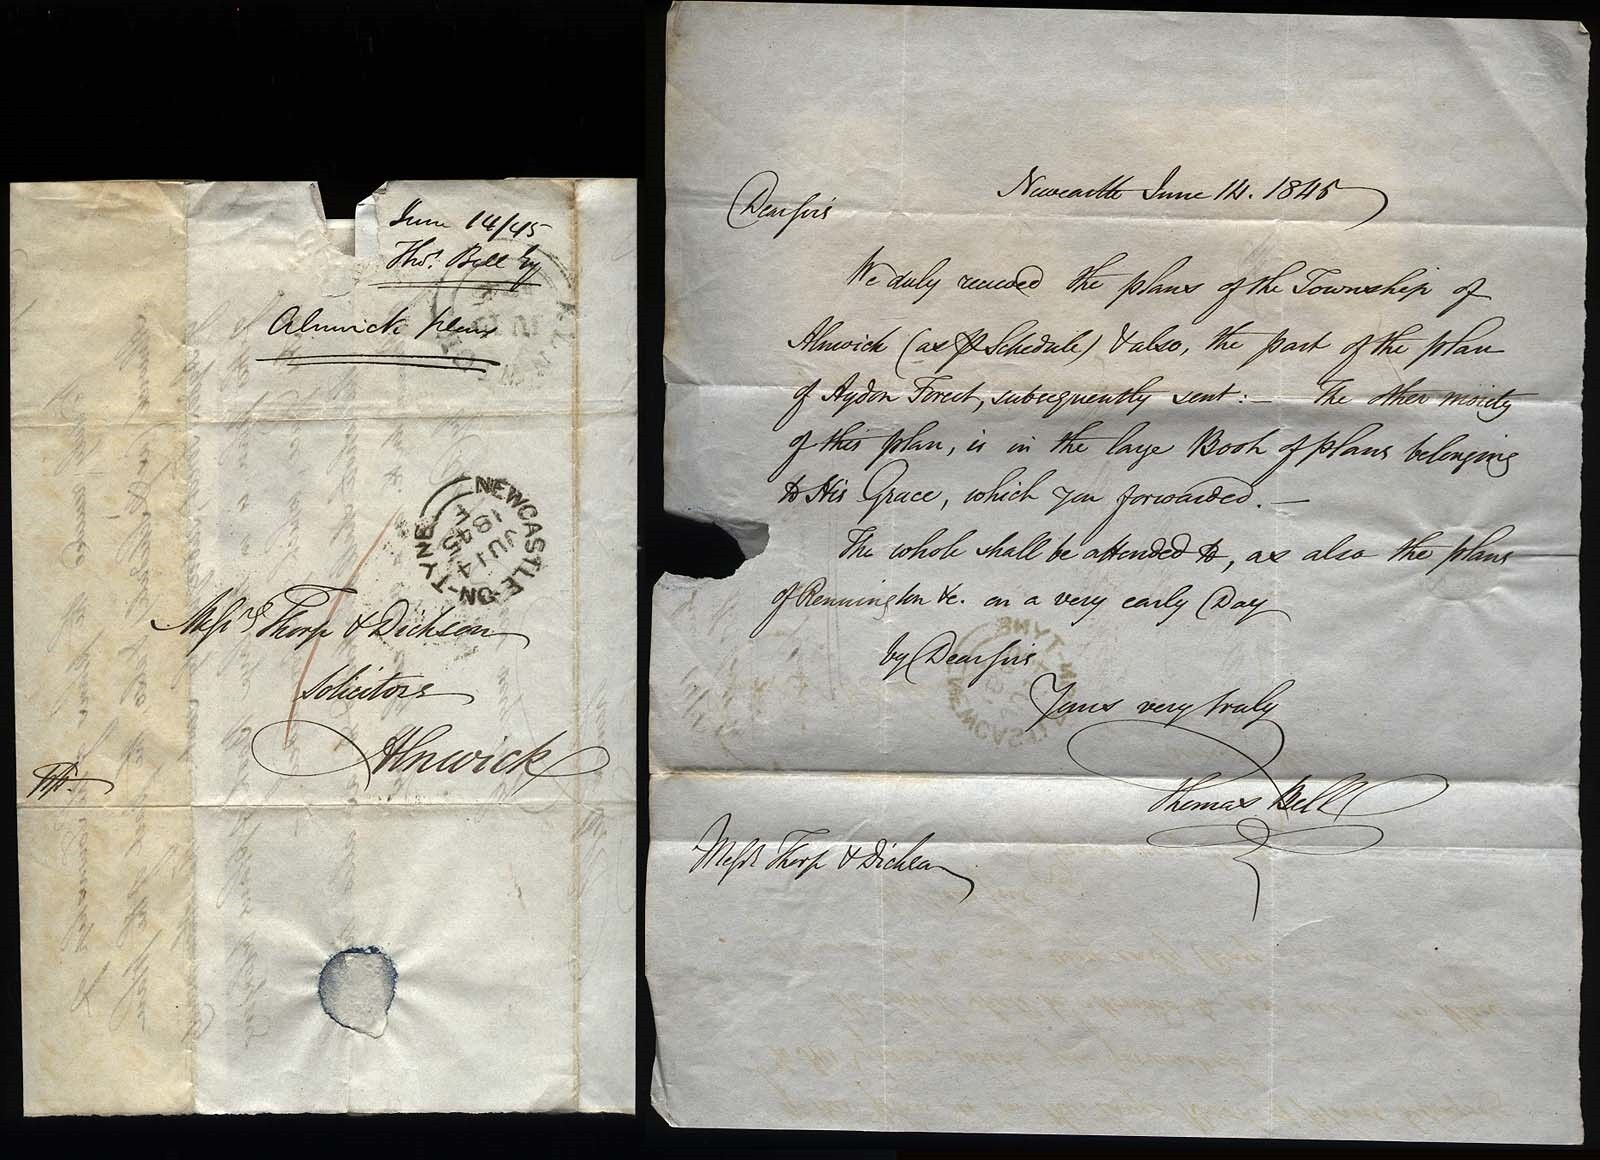 June 14/45
Thos. Bell Esq
Alnwick plans
NEWCASTLE-ON-TYNE
JU 14
1845
Messrs Thorp & Dickson
Solicitors
Alnwick
Newcastle June 14. 1845
Dear Sirs
We duly received the plans of the Township of
Alnwick (as pr Schedule) & also, the part of the plan
of Aydon Forest, subsequently sent: — The other moiety
of this plan, is in the large Book of plans belonging
to His Grace, which you forwarded. —
The whole shall be attended to, as also the plans
of Rennington &c. on a very early Day
by Dear Sirs
Yours very truly
Thomas Bell
Messrs Thorp & Dickson